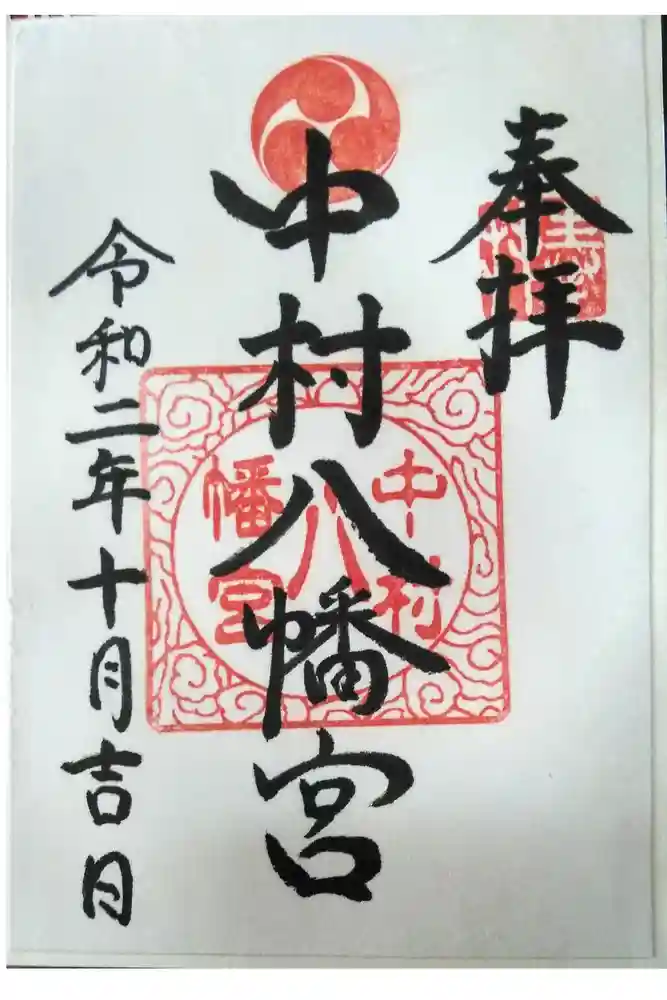 奉拝
中村八幡宮
令和二年十月吉日
中村八幡宮